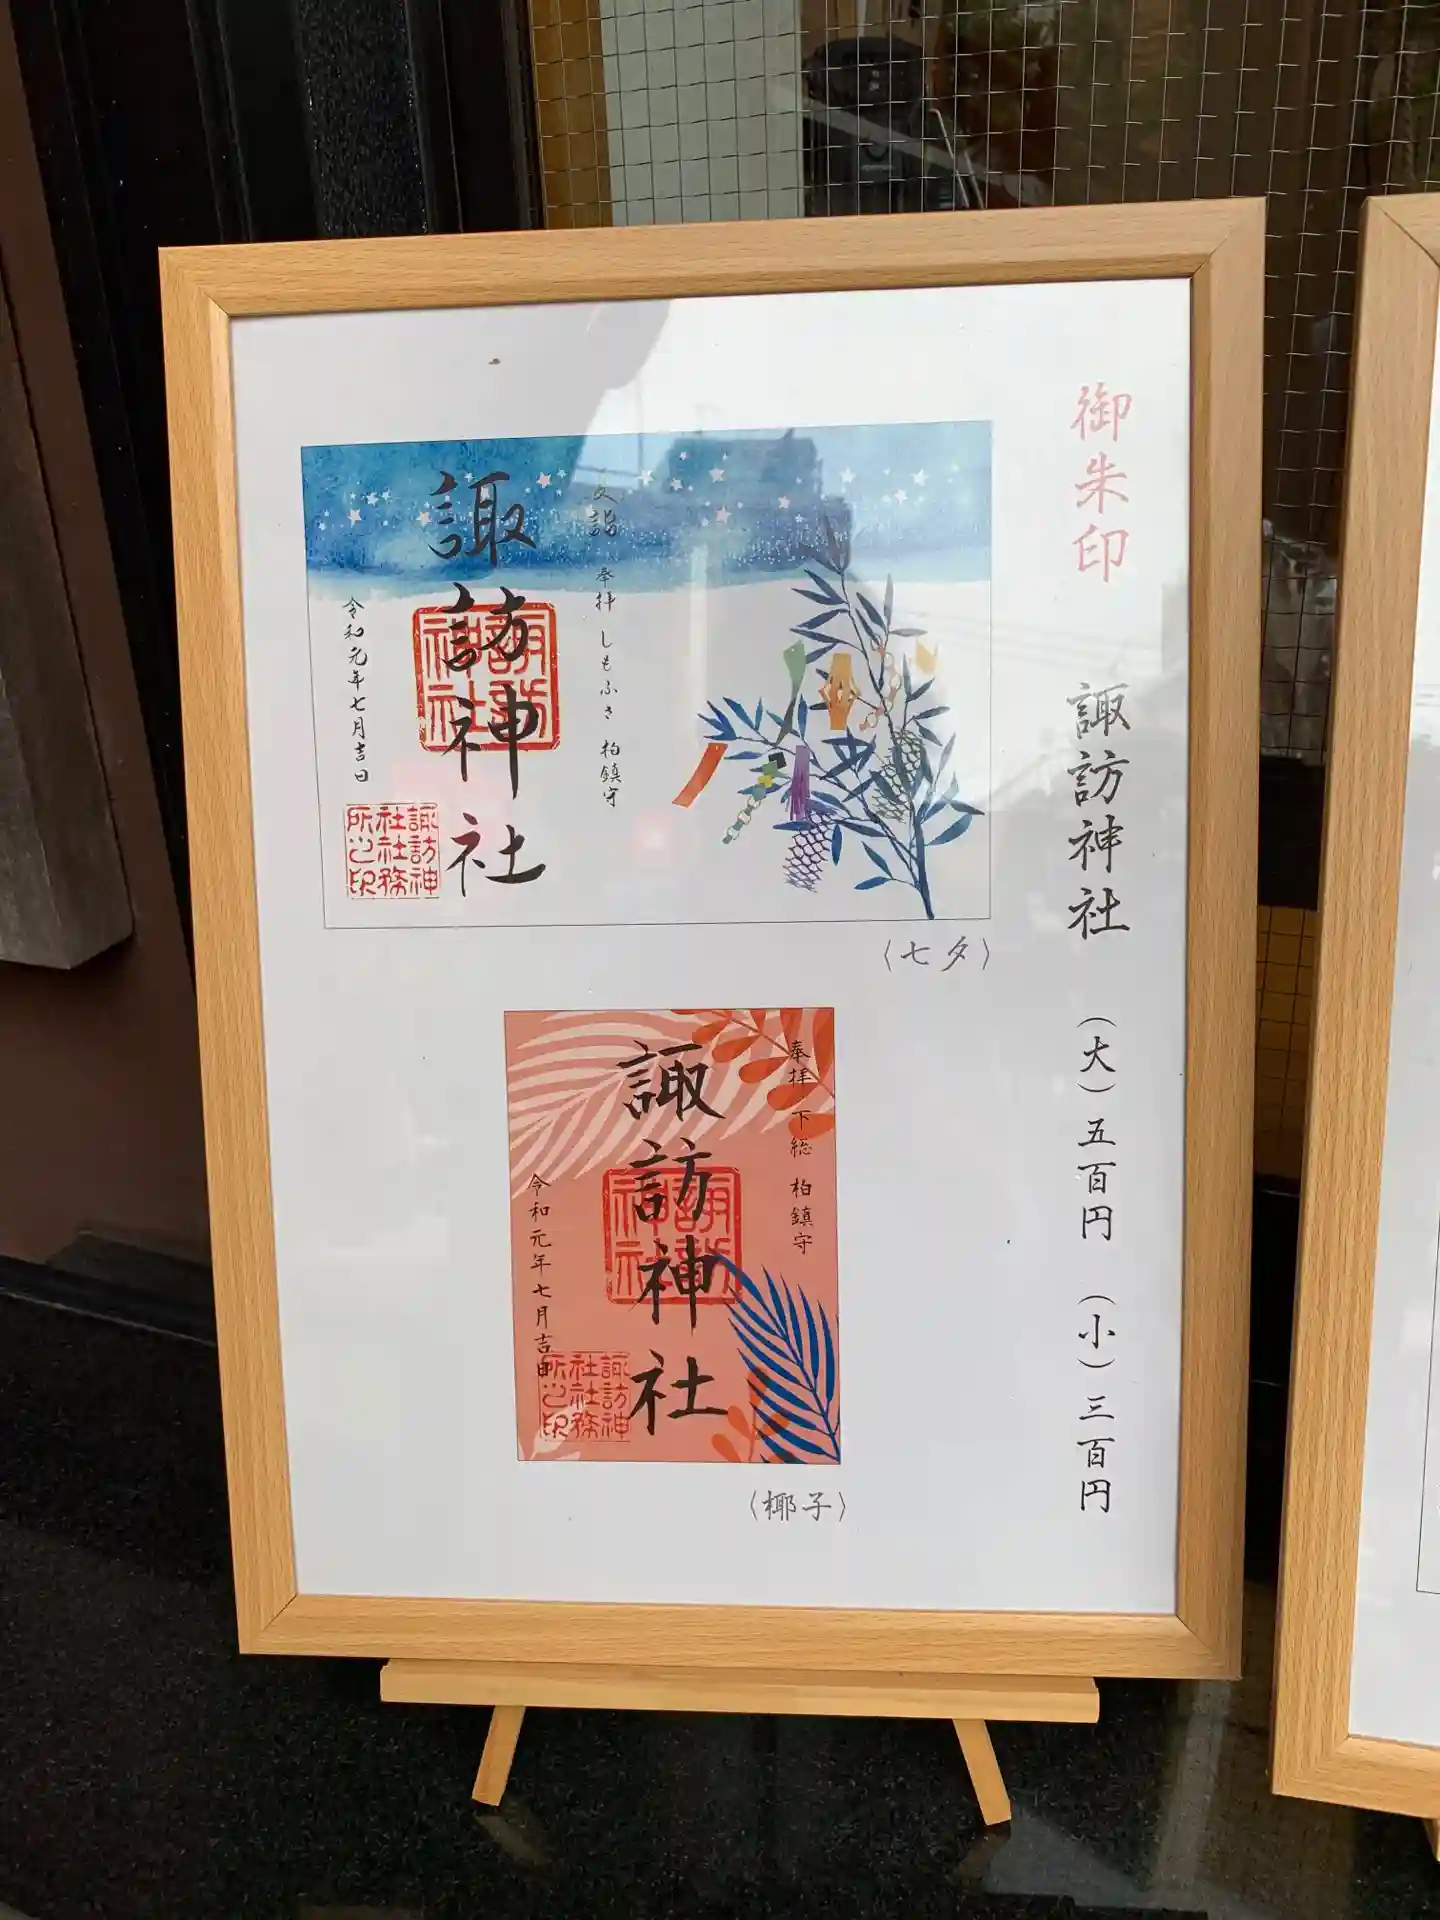 御朱印 諏訪神社 （大）五百円 （小）三百円
夏詣 奉拝 しもふさ 柏鎮守
諏訪神社
諏訪神社
令和元年七月吉日
諏訪神
社社務
所之印
〈七夕〉
奉拝 下総 柏鎮守
諏訪神社
諏訪神社
令和元年七月吉日
諏訪神
社社務
所之印
〈椰子〉